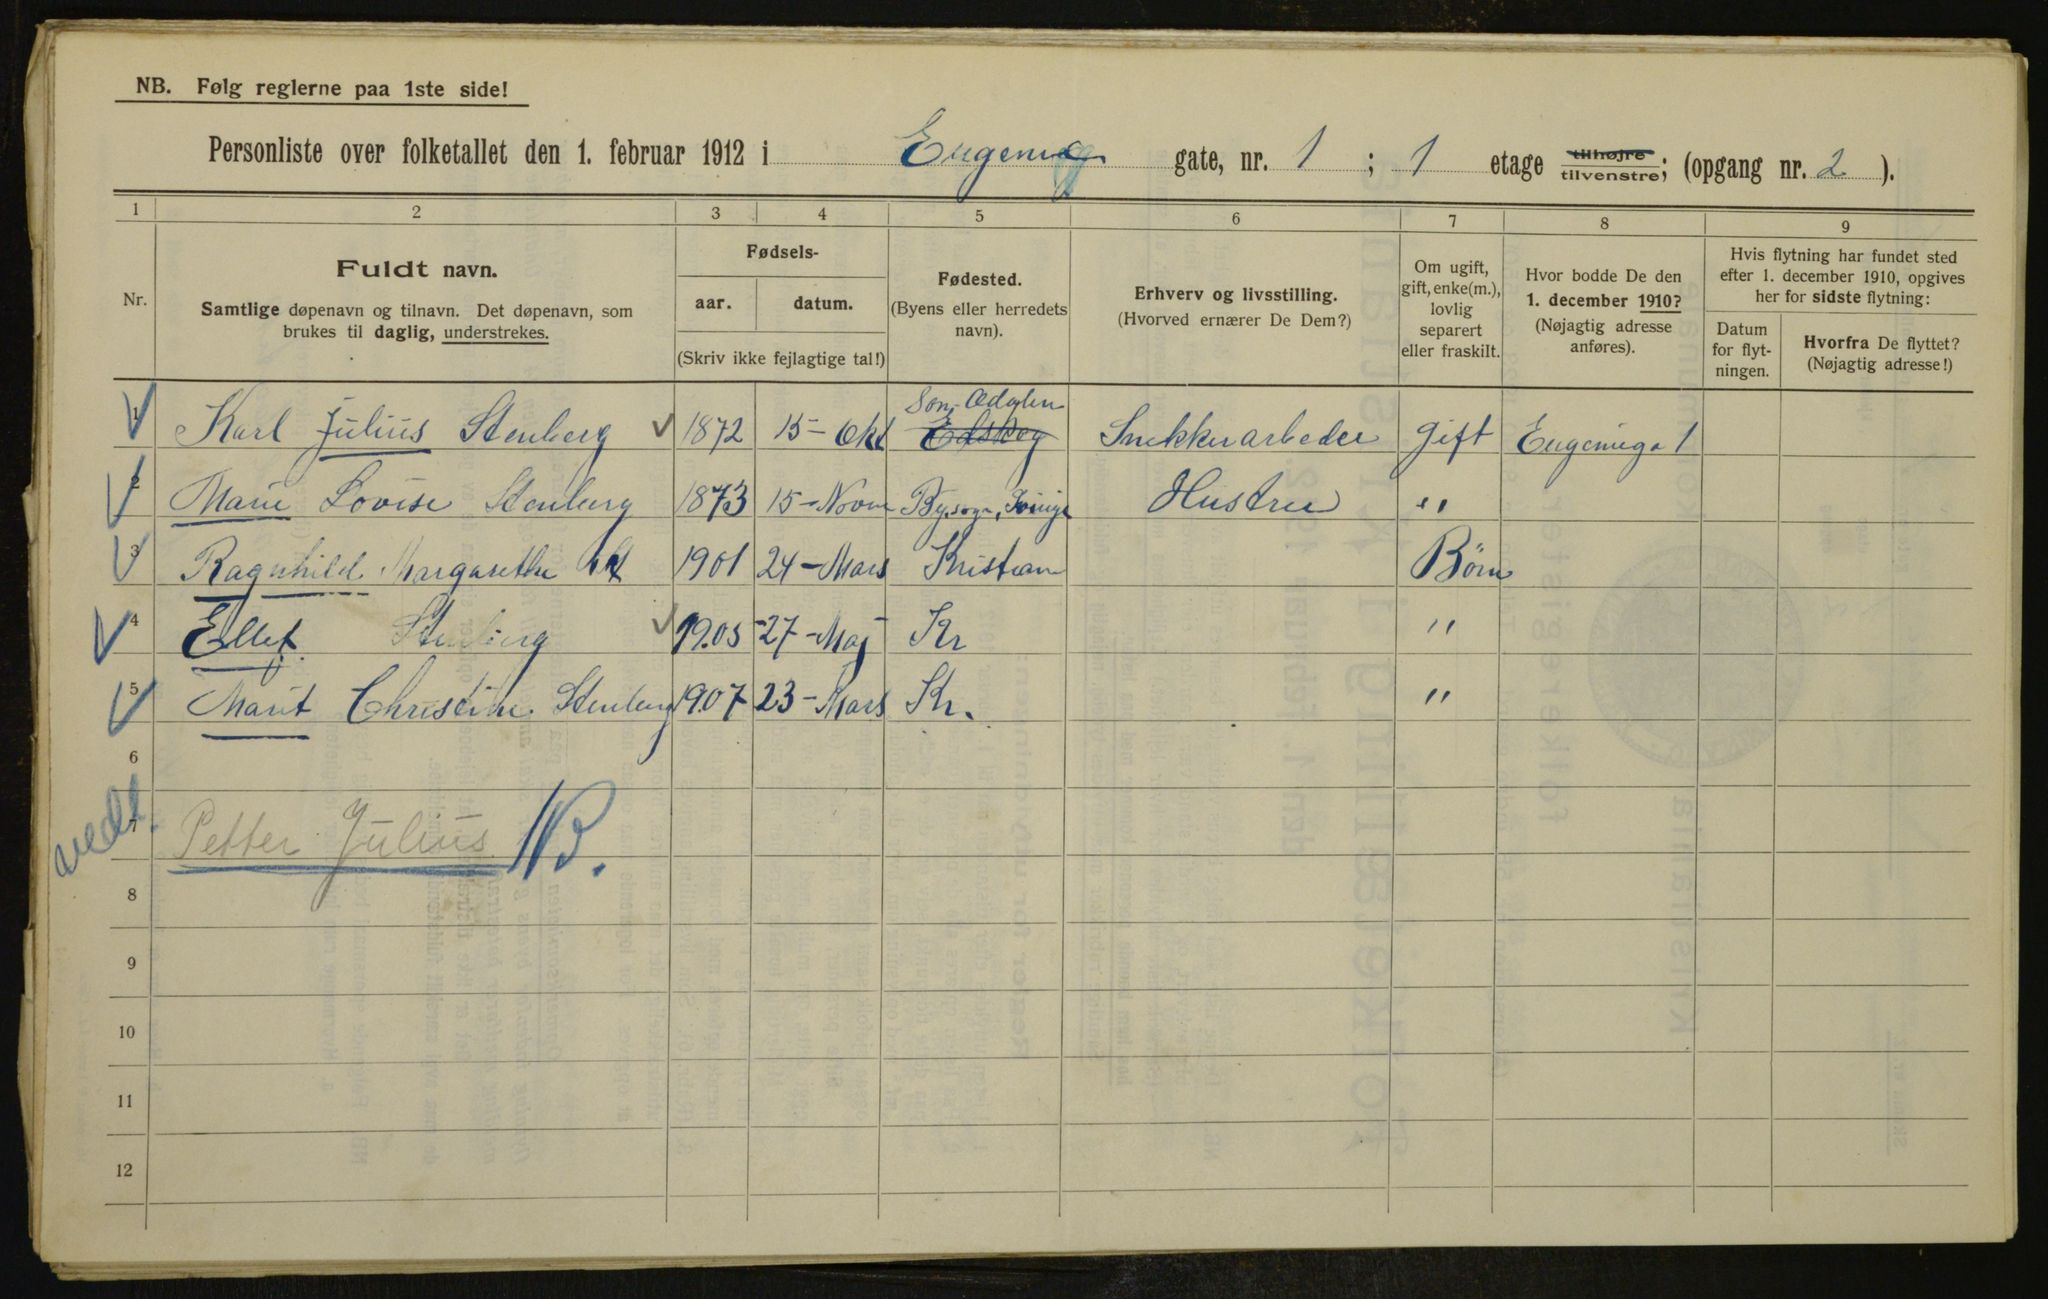 NB. Følg reglerne paa 1ste side!
Personliste over folketallet den 1. februar 1912 i Eugenie gate, nr. 1 ; 1 etage tilhøjre tilvenstre; (opgang nr. 2 ).
1 2 3 4 5 6 7 8 9
Nr.
Fuldt navn.
Samtlige døpenavn og tilnavn. Det døpenavn, som
brukes til daglig, understrekes.
Fødsels-
aar. datum.
(Skriv ikke fejlagtige tal!)
Fødested.
(Byens eller herredets
navn).
Erhverv og livsstilling.
(Hvorved ernærer De Dem?)
Om ugift,
gift, enke(m.),
lovlig
separert
eller fraskilt.
Hvor bodde De den
1. december 1910?
(Nøjagtig adresse
anføres).
Hvis flytning har fundet sted
efter 1. december 1910, opgives
her for sidste flytning:
Datum
for flyt-
ningen.
Hvorfra De flyttet?
(Nøjagtig adresse!)
1 Karl Julius Stenberg 1872 15-Okt Edskog Snekkerarbeder gift Eugeniega 1
2 Marie Lovise Stenberg 1873 15-Novm Bysogn, Hustru "
3 Ragnhild Margarethe St 1901 24-Mars Kristian Børn
4 Ellef Stenberg 1905 27-Maj Kr "
5 Marit Christine Stenberg 1907 23-Mars Kr. "
6
7 Petter Julius NB.
8
9
10
11
12